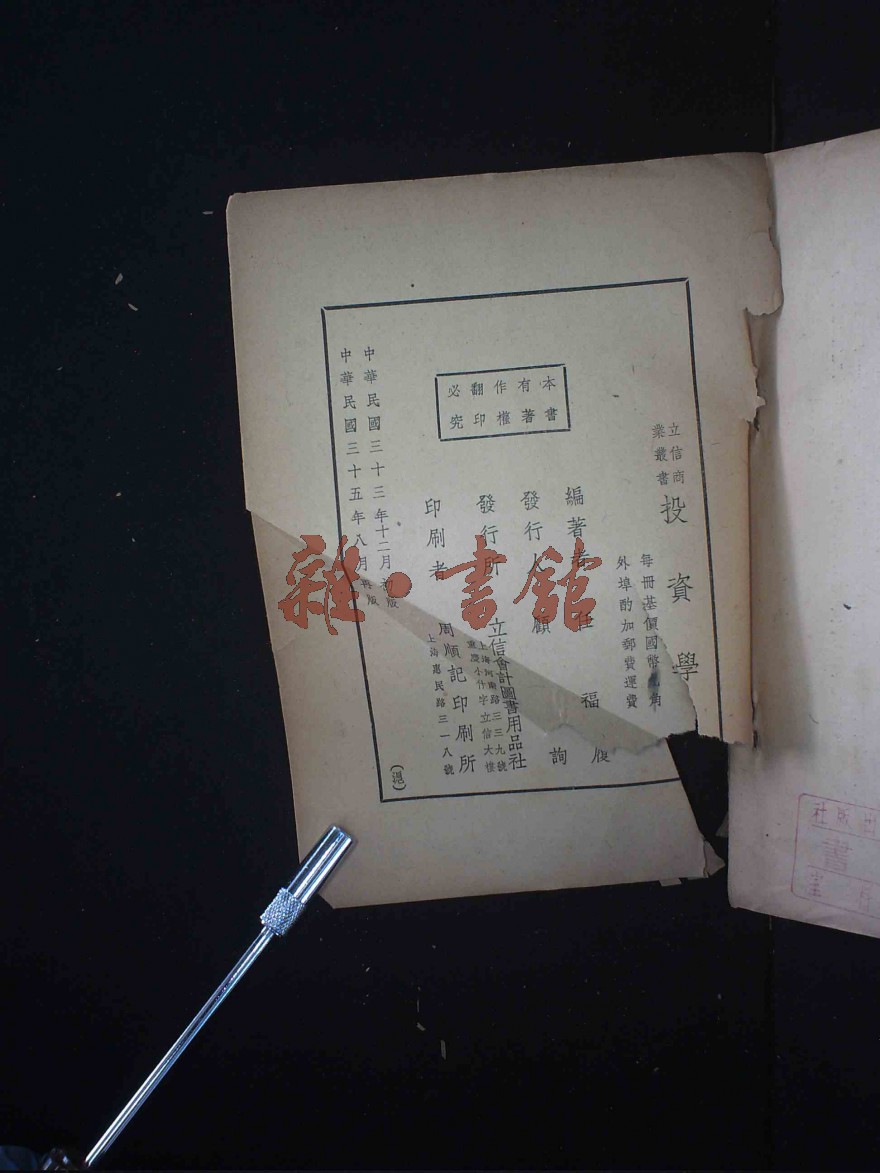 立信商
業叢書
投資學
每冊基價國幣 角
外埠酌加郵費運費
本書
有著
作權
翻印
必究
編著者 任福履
發行人 顧詢
發行所 立信會計圖書用品社
上海河南路三三九號
重慶小什字立信大樓
印刷者 周順記印刷所
上海惠民路三一八號
中華民國三十三年十二月初版
中華民國三十五年八月再版
(滬)
雜·書館